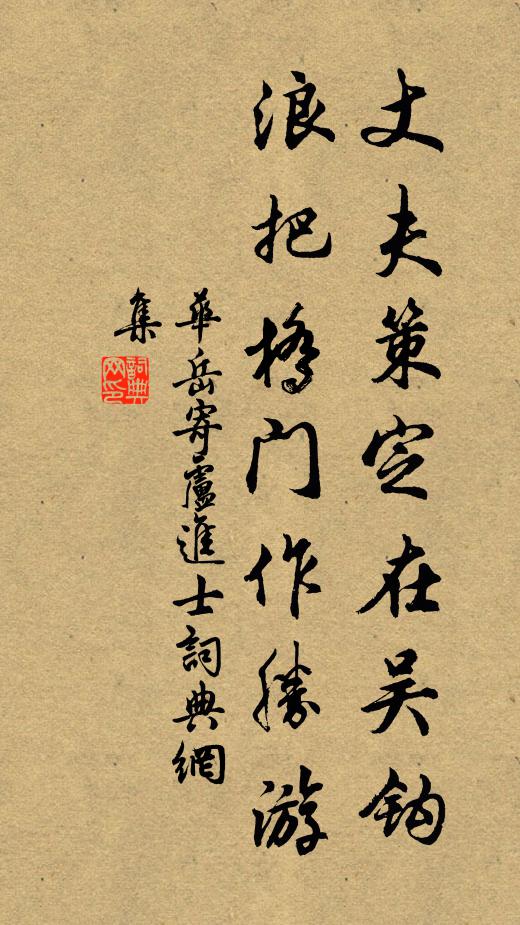 丈夫策定在吴钩
浪把桥门作勝游
華岳寄盧進士詞典網
集
詞典網印